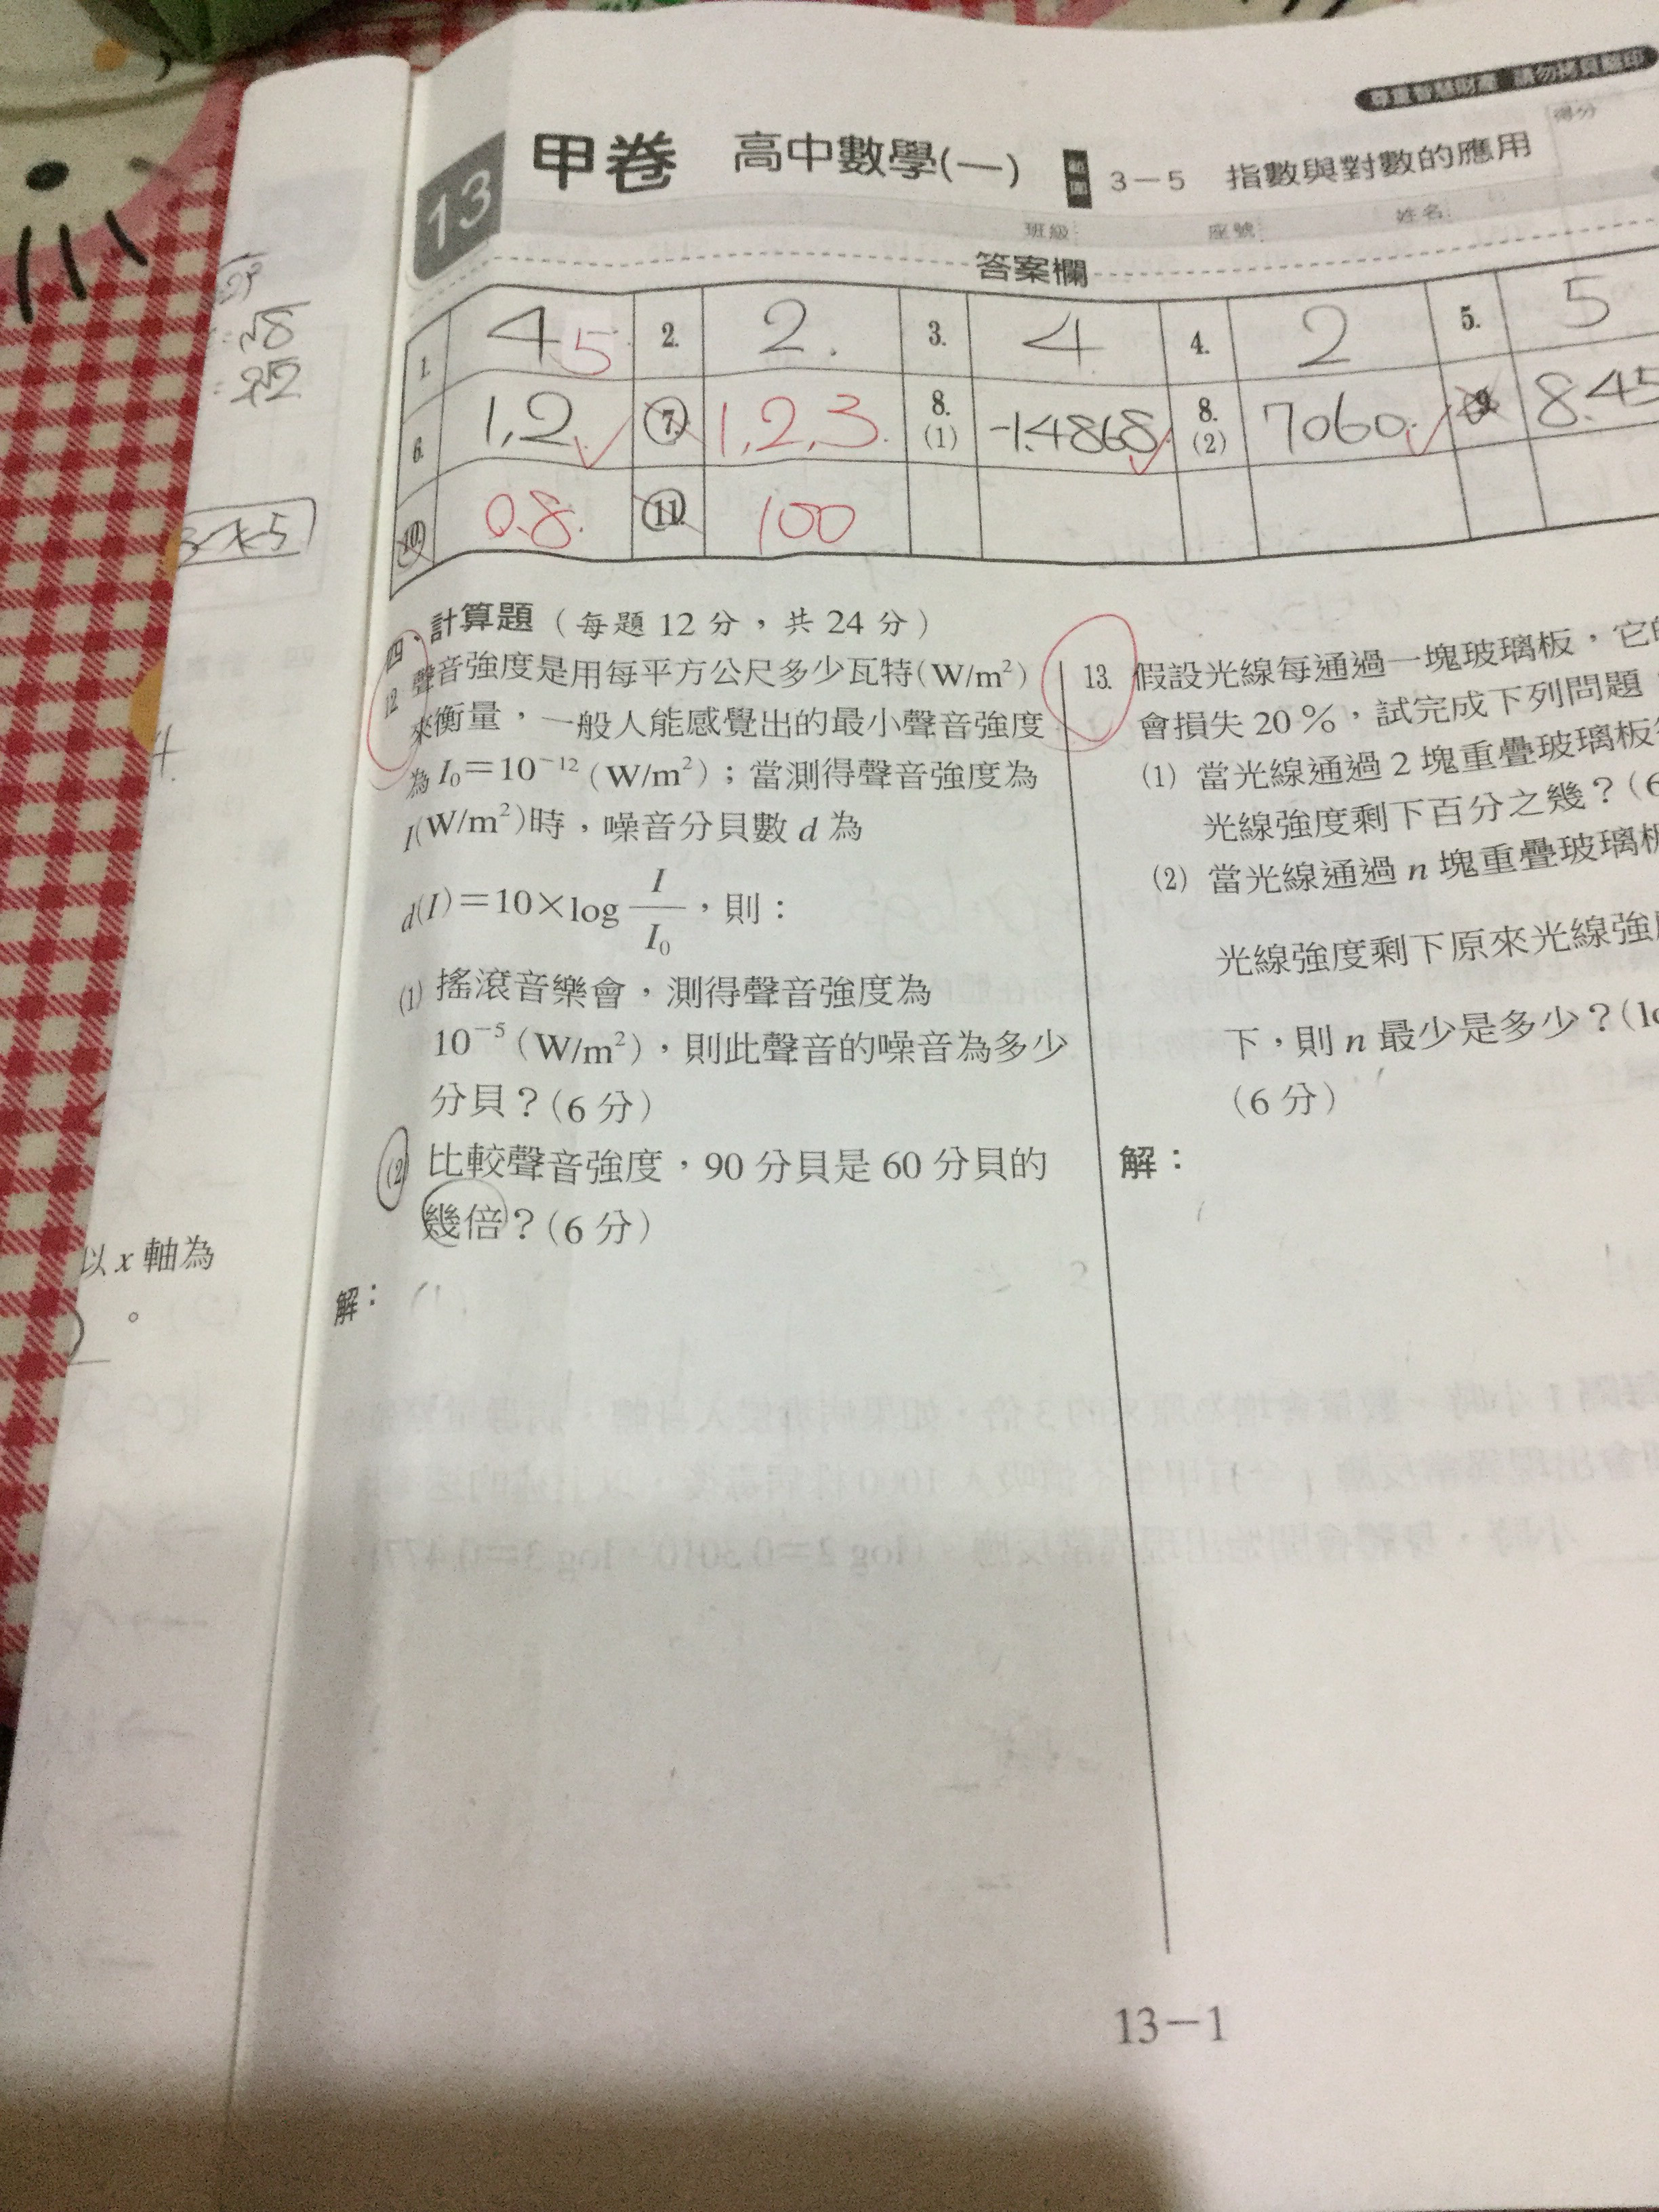 尊重智慧財產 請勿拷貝翻印
13 甲卷 高中數學(一) 範圍 3-5 指數與對數的應用 得分
班級: 座號: 姓名:
答案欄
1. 4 5 2. 2. 3. 4 4. 2 5. 5
6. 1,2 7. 1,2,3. 8.(1) -1.4868 8.(2) 7060. 9. 8.45
10. 0.8. 11. 100
四、計算題(每題 12 分,共 24 分)
12. 聲音強度是用每平方公尺多少瓦特(W/m²)
來衡量,一般人能感覺出的最小聲音強度
為 I₀=10⁻¹² (W/m²);當測得聲音強度為
I(W/m²)時,噪音分貝數 d 為
d(I)=10×log I/I₀,則:
(1) 搖滾音樂會,測得聲音強度為
10⁻⁵ (W/m²),則此聲音的噪音為多少
分貝?(6 分)
(2) 比較聲音強度,90 分貝是 60 分貝的
幾倍?(6 分)
解:
13. 假設光線每通過一塊玻璃板,它的
會損失 20 %,試完成下列問題
(1) 當光線通過 2 塊重疊玻璃板
光線強度剩下百分之幾?(6
(2) 當光線通過 n 塊重疊玻璃板
光線強度剩下原來光線強
下,則 n 最少是多少?(lo
(6 分)
解:
√8
2√2
以 x 軸為
。
13-1